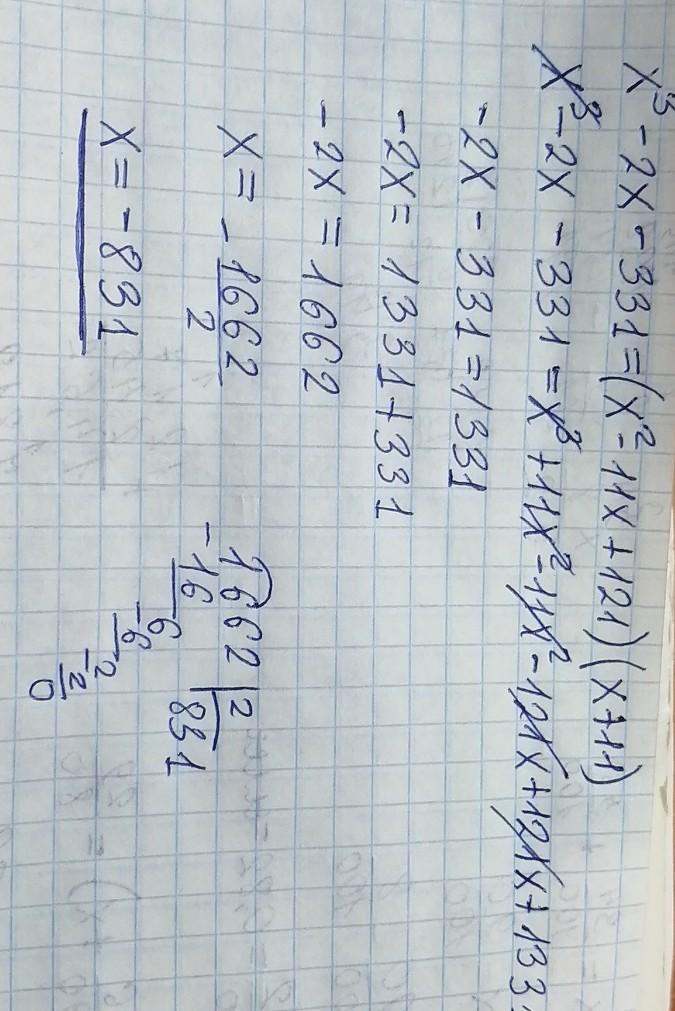 x³ - 2x - 331 = (x² - 11x + 121)(x + 11)
x³ - 2x - 331 = x³ + 11x² - 11x² - 121x + 121x + 133
-2x - 331 = 1331
-2x = 1331 + 331
-2x = 1662
x = - 1662/2
x = -831
1662 | 2
-16 | 831
6
-6
2
-2
0